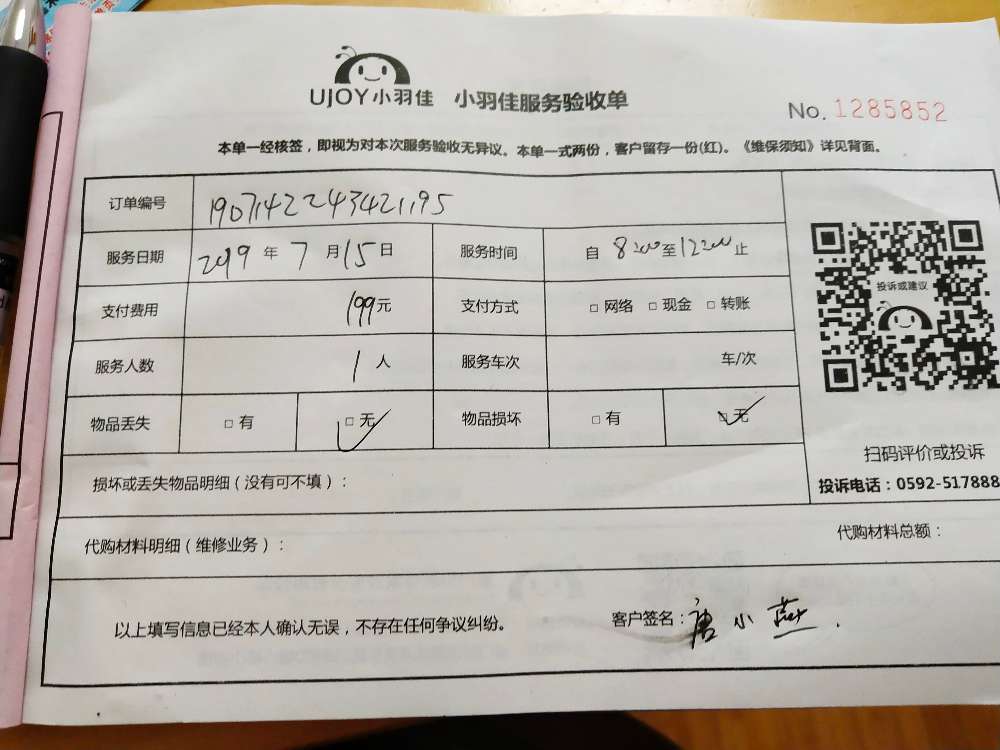 UJOY小羽佳 小羽佳服务验收单
No. 1285852
本单一经核签，即视为对本次服务验收无异议。本单一式两份，客户留存一份(红)。《维保须知》详见背面。
订单编号 190714224342195
服务日期 2019年7月15日 服务时间 自8:00至12:00止
支付费用 199元 支付方式 □网络 □现金 □转账
服务人数 1人 服务车次 车/次
物品丢失 □有 □无 ✓ 物品损坏 □有 □无 ✓
投诉或建议
扫码评价或投诉
投诉电话：0592-517888
损坏或丢失物品明细（没有可不填）：
代购材料明细（维修业务）： 代购材料总额：
以上填写信息已经本人确认无误，不存在任何争议纠纷。 客户签名：唐小燕